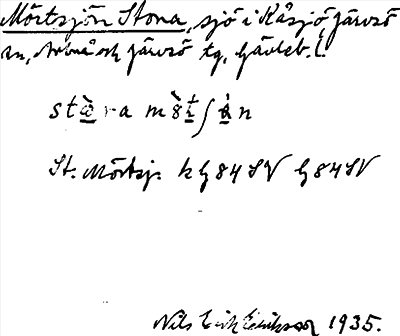 Mörtsjön Stora, sjö i Kåsjö Järvsö
sn, Arbrå och Järvsö tg, Gävleb. l.
stⱥra m8tʃạn
St. Mörtsj. k G84SV G84SV
Nils Erik Eriksson 1935.